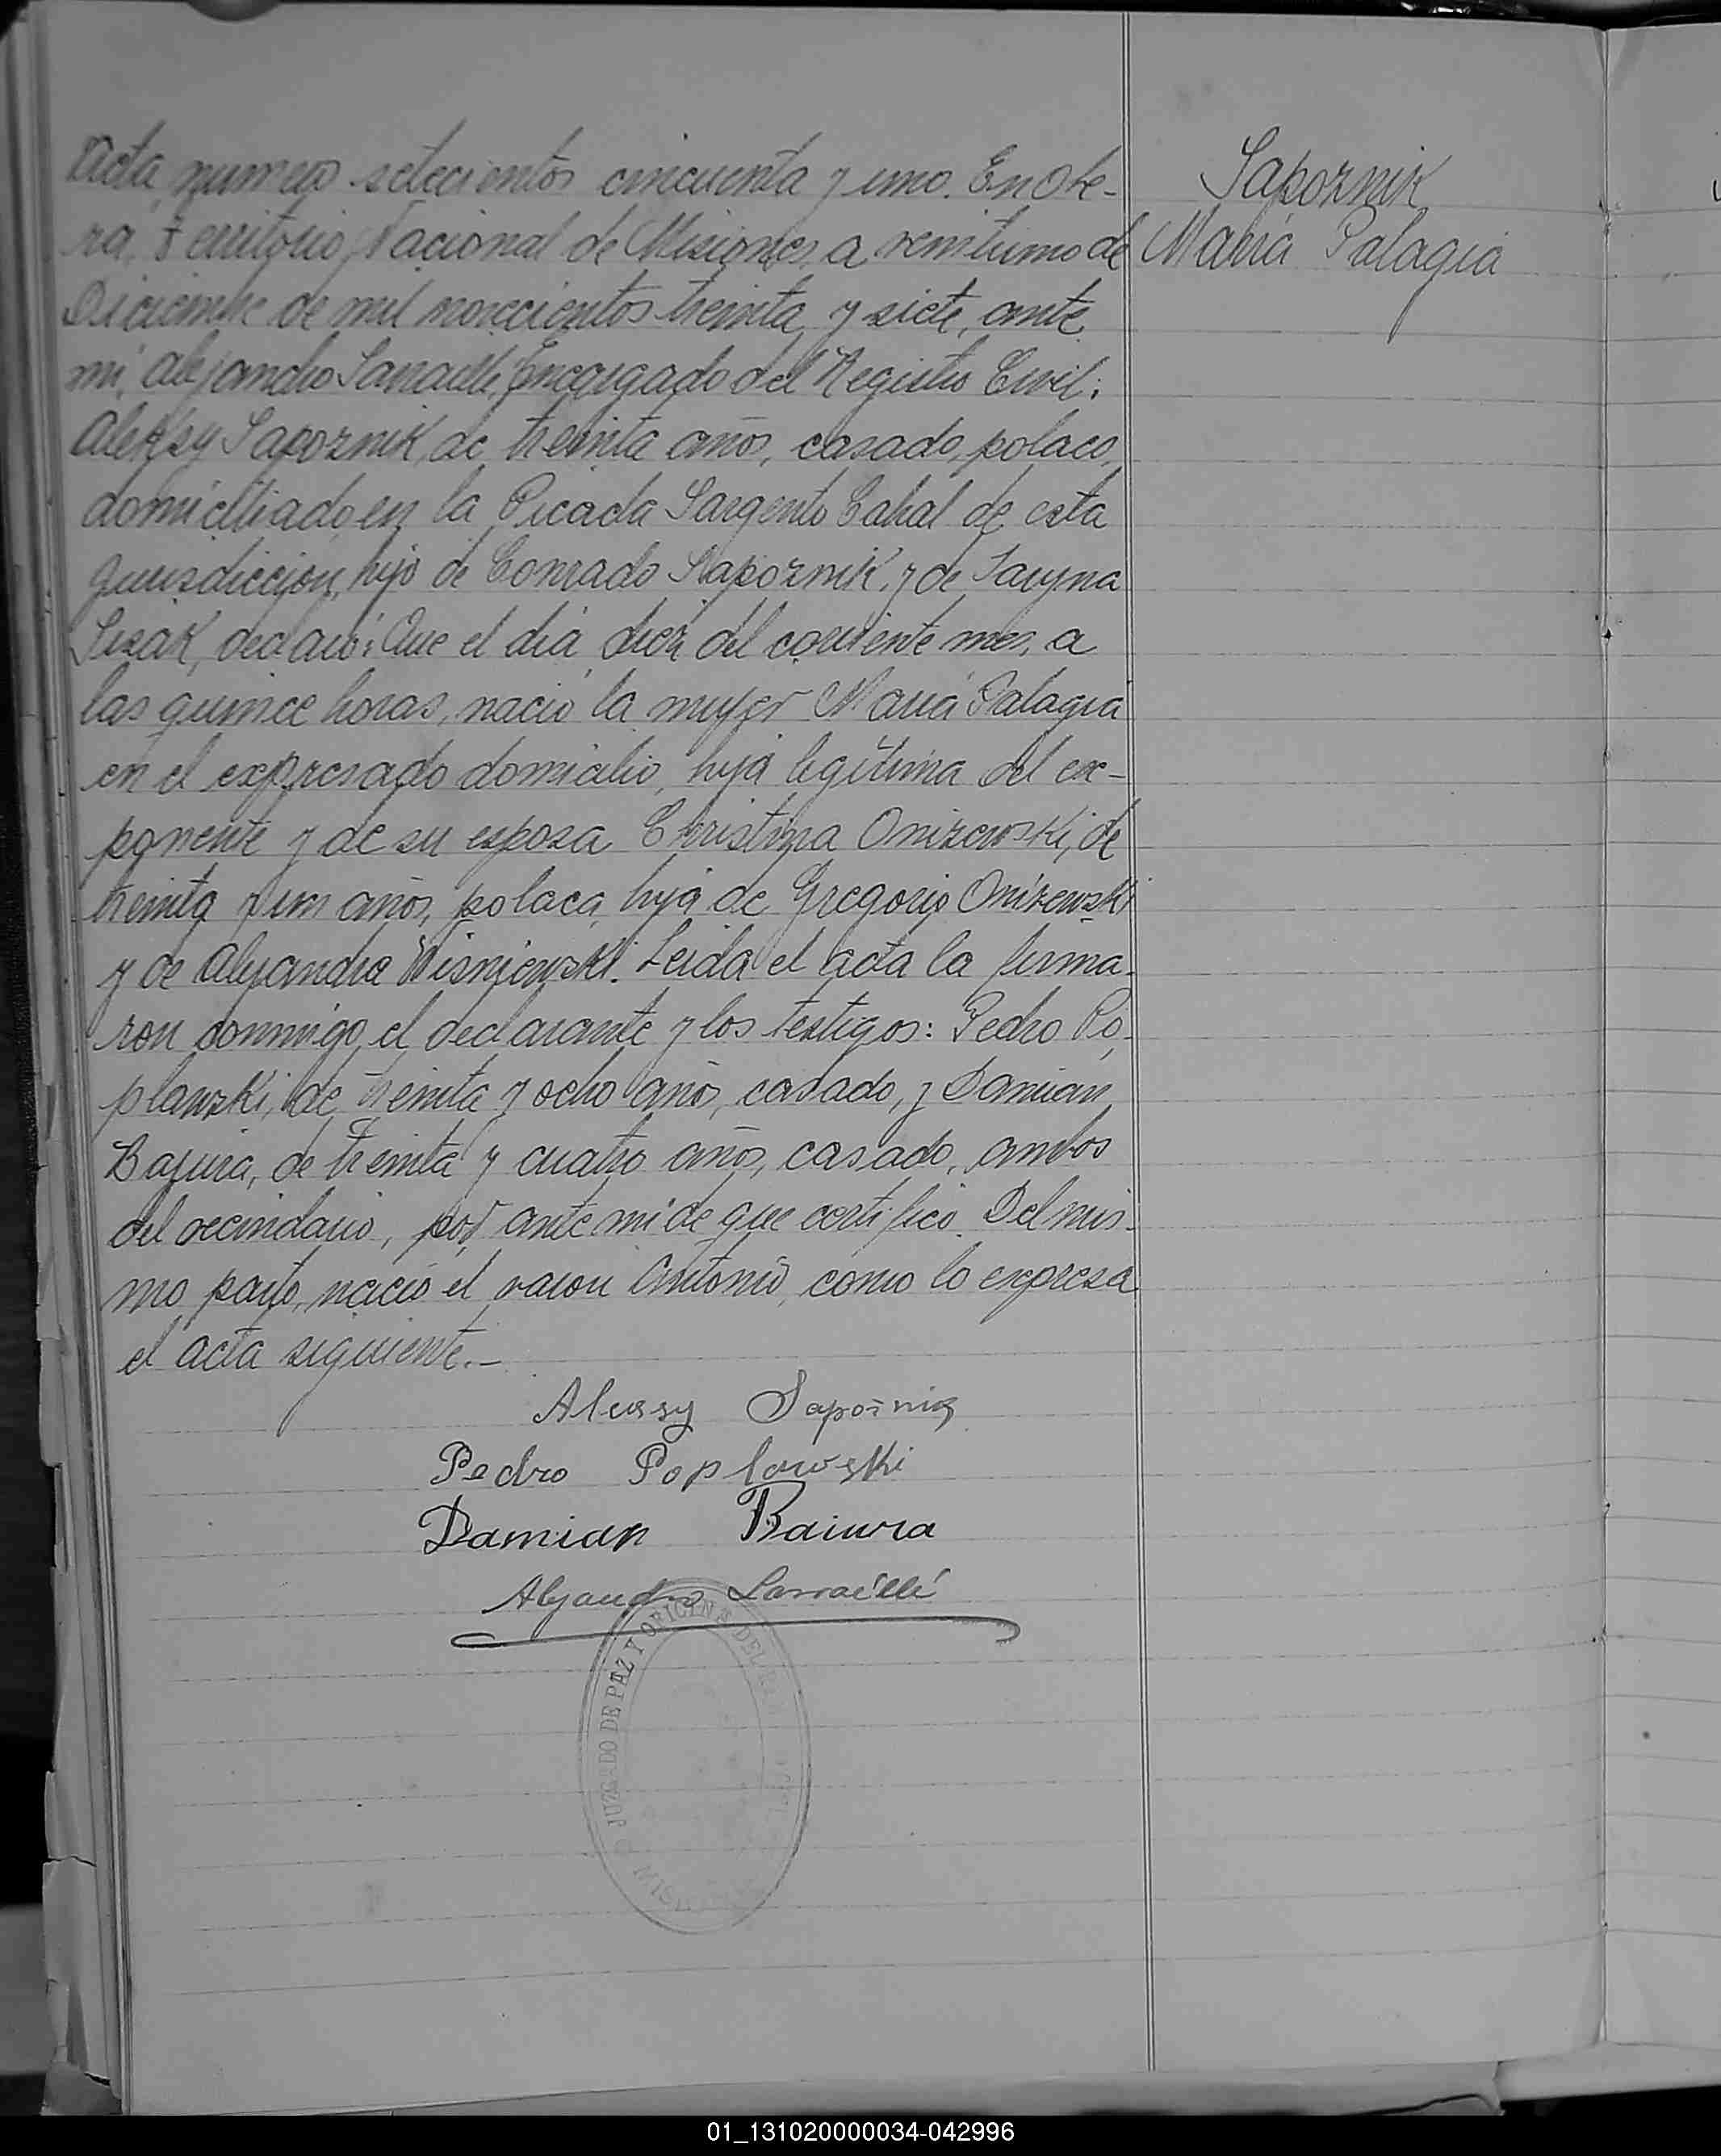 Acta numero setecientos cincuenta y uno. En Obe-
ra, Territorio Nacional de Misiones, a veintiuno de
Diciembre de mil novecientos treinta y siete, ante
mi, Alejandro Larraellé, Encargado del Registro Civil:
Aleksy Sapoznik, de treinta años, casado, polaco,
domiciliado en la Picada Sargento Cabral de esta
jurisdiccion, hijo de Conrado Sapoznik, y de Taryna
declaró: Que el dia diez del corriente mes, a
las quince horas, nació la mujer Maria Palagia
en el expresado domicilio, hija legitima del ex-
ponente y de su esposa Christyna Onizewski, de
treinta y un años, polaca, hija de Gregorio Onizewski
y de Alejandra Wisniewski. Leida el acta la firma-
ron conmigo el declarante y los testigos: Pedro Po-
plawski, de treinta y ocho años, casado, y Damian
Bajura, de treinta y cuatro años, casado, ambos
del vecindario, por ante mi de que certifico. Del mis-
mo parto, nació el varon Antonio, como lo expresa
el acta siguiente.-
Sapoznik
Maria Palagia
Aleksy Sapoźnik
Pedro Poplowski
Damian Baiura
Alejandro Larraéllé
JUZGADO DE PAZ Y OFICINA DEL
01_131020000034-042996